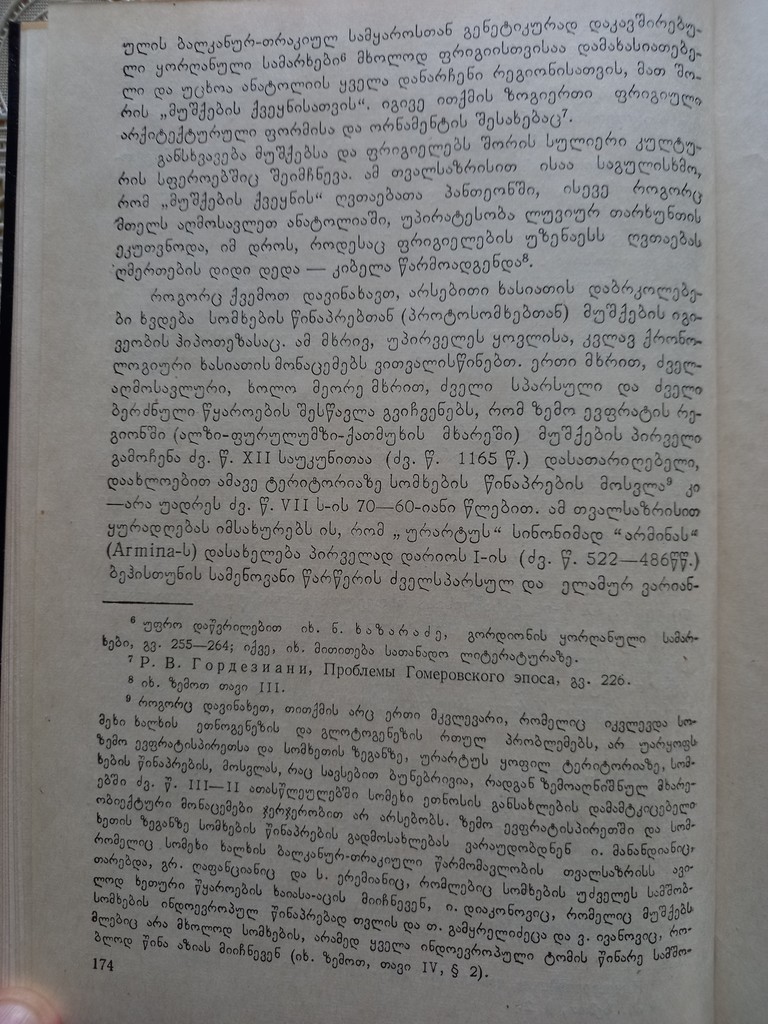 ულის ბალკანურ-თრაკიულ სამყაროსთან გენეტიკურად დაკავშირებუ-
ლი ყორღანული სამარხები⁶ მხოლოდ ფრიგიისთვისაა დამახასიათებე-
ლი და უცხოა ანატოლიის ყველა დანარჩენი რეგიონისათვის, მათ შო-
რის „მუშქების ქვეყნისათვის“. იგივე ითქმის ზოგიერთი ფრიგიული
არქიტექტურული ფორმისა და ორნამენტის შესახებაც⁷.
განსხვავება მუშქებსა და ფრიგიელებს შორის სულიერი კულტუ-
რის სფეროებშიც შეიმჩნევა. ამ თვალსაზრისით ისაა საგულისხმო,
რომ „მუშქების ქვეყნის“ ღვთაებათა პანთეონში, ისევე როგორც
მთელს აღმოსავლეთ ანატოლიაში, უპირატესობა ლუვიურ თარხუნთის
ეკუთვნოდა, იმ დროს, როდესაც ფრიგიელების უზენაესს ღვთაებას
ღმერთების დიდი დედა — კიბელა წარმოადგენდა⁸.
როგორც ქვემოთ დავინახავთ, არსებითი ხასიათის დაბრკოლებე-
ბი ხვდება სომხების წინაპრებთან (პროტოსომხებთან) მუშქების იგი-
ვეობის ჰიპოთეზასაც. ამ მხრივ, უპირველეს ყოვლისა, კვლავ ქრონო-
ლოგიური ხასიათის მონაცემებს ვითვალისწინებთ. ერთი მხრით, ძველ-
აღმოსავლური, ხოლო მეორე მხრით, ძველი სპარსული და ძველი
ბერძნული წყაროების შესწავლა გვიჩვენებს, რომ ზემო ევფრატის რე-
გიონში (ალზი-ფურულუმზი-ქათმუხის მხარეში) მუშქების პირველი
გამოჩენა ძვ. წ. XII საუკუნითაა (ძვ. წ. 1165 წ.) დასათარიღებელი,
დაახლოებით ამავე ტერიტორიაზე სომხების წინაპრების მოსვლა⁹ კი
—არა უადრეს ძვ. წ. VII ს-ის 70—60-იანი წლებით. ამ თვალსაზრისით
ყურადღებას იმსახურებს ის, რომ „ურარტუს“ სინონიმად “არმინას“
(Armina-ს) დასახელება პირველად დარიოს I-ის (ძვ. წ. 522—486წწ.)
ბეჰისთუნის სამენოვანი წარწერის ძველსპარსულ და ელამურ ვარიან-
⁶ უფრო დაწვრილებით იხ. ნ. ხაზარაძე, გორდიონის ყორღანული სამარ-
ხები, გვ. 255—264; იქვე, იხ. მითითება სათანადო ლიტერატურაზე.
⁷ Р. В. Гордезиани, Проблемы Гомеровского эпоса, გვ. 226.
⁸ იხ. ზემოთ თავი III.
⁹ როგორც დავინახეთ, თითქმის არც ერთი მკვლევარი, რომელიც იკვლევდა სო-
მეხი ხალხის ეთნოგენეზის და გლოტოგენეზის რთულ პრობლემებს, არ უარყოფს
ზემო ევფრატისპირეთსა და სომხეთის ზეგანზე, ურარტუს ყოფილ ტერიტორიაზე, სომ-
ხების წინაპრების, მოსვლას, რაც სავსებით ბუნებრივია, რადგან ზემოაღნიშნულ მხარე-
ებში ძვ. წ. III—II ათასწლეულებში სომეხი ეთნოსის განსახლების დამამტკიცებელი
ობიექტური მონაცემები ჯერჯერობით არ არსებობს. ზემო ევფრატისპირეთში და სომ-
ხეთის ზეგანზე სომხების წინაპრების გადმოსახლებას ვარაუდობდნენ ი. მანანდიანიც,
რომელიც სომეხი ხალხის ბალკანურ-თრაკიული წარმომავლობის თვალსაზრისს ავი-
თარებდა, გრ. ღაფანციანიც და ს. ერემიანიც, რომლებიც სომხების უძველეს სამშობ-
ლოდ ხეთური წყაროების ხაიასა-აცის მიიჩნევენ, ი. დიაკონოვიც, რომელიც მუშქებს
სომხების ინდოევროპულ წინაპრებად თვლის და თ. გამყრელიძეცა და ვ. ივანოვიც, რო-
მლებიც არა მხოლოდ სომხების, არამედ ყველა ინდოევროპული ტომის წინარე სამშო-
ბლოდ წინა აზიას მიიჩნევენ (იხ. ზემოთ, თავი IV, § 2).
174